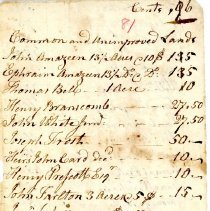 Cents, 96
81
Common and Unimproved Lands
John Amazeen 13½ Acres 10$ 135
Ephraim Amazeen 13½ Do Do 135
Thomas Bell 1 Acre 10
Henry Branscomb 27.50
John White Junr 27.50
Joseph Frost 50.-
Heirs John Card decd 10.-
Henry Prescott Esqr 10.-
John Tarlton 3 Acres 5$ 15